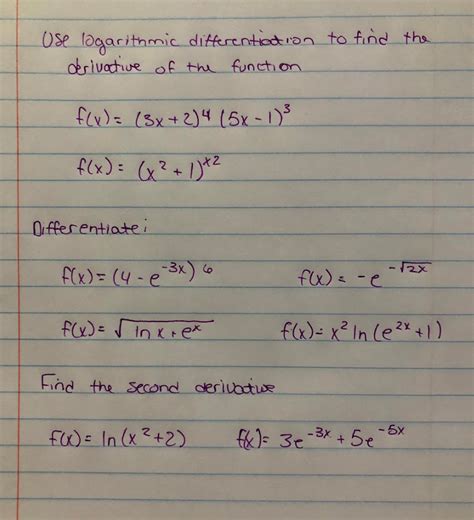 Use logarithmic differentiation to find the
derivative of the function
f(x) = (3x + 2)⁴ (5x - 1)³
f(x) = (x² + 1)^x2
Differentiate:
f(x) = (4 - e^-3x)⁶ f(x) = -e^-√2x
f(x) = √ln x + eˣ f(x) = x² ln (e^2x + 1)
Find the second derivative
f(x) = ln (x² + 2) f(x) = 3e^-3x + 5e^-5x